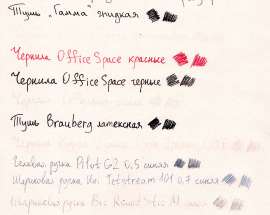 Тушь „Гамма" жидкая
Чернила Office Space красные
Чернила Office Space черные
Тушь Brauberg латексная
Гелевая ручка Pilot G2 0,5 синяя
Шариковая ручка Uni Jetstream 101 0,7 синяя
Шариковая ручка Bic Round Stic M